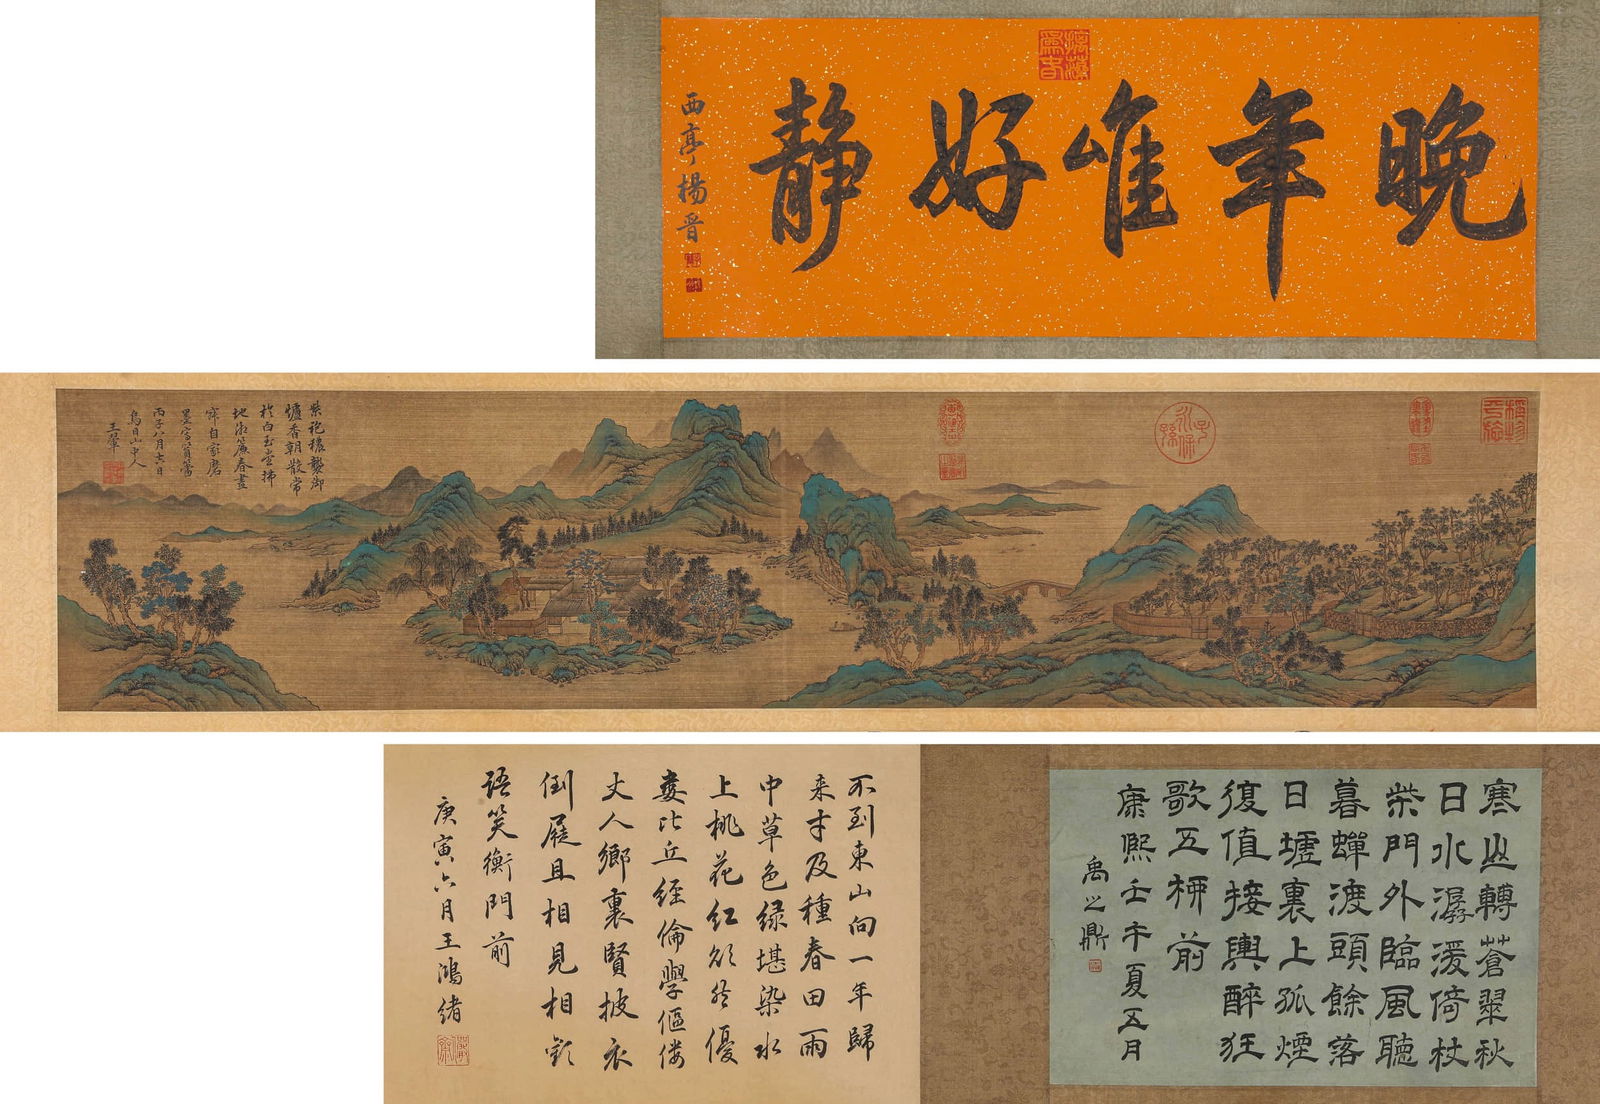 晚年唯好靜
西亭楊晉
子孫永保
紫袍穠襲御
爐香朝散常
於白玉堂掃
地垂簾春晝
寂自家磨
墨寫篔簹
丙子八月十六日
烏目山中人
王翬
寒山轉蒼翠秋
日水潺湲倚杖
柴門外臨風聽
暮蟬渡頭餘落
日墟裏上孤煙
復值接輿醉狂
歌五柳前
康熙壬午夏五月
禹之鼎
不到東山向一年歸
来才及種春田雨
中草色緑堪染水
上桃花紅欲然優
婁比丘經倫學傴僂
丈人鄉裏賢披衣
倒屣且相見相歡
語笑衡門前
庚寅六月王鴻緒